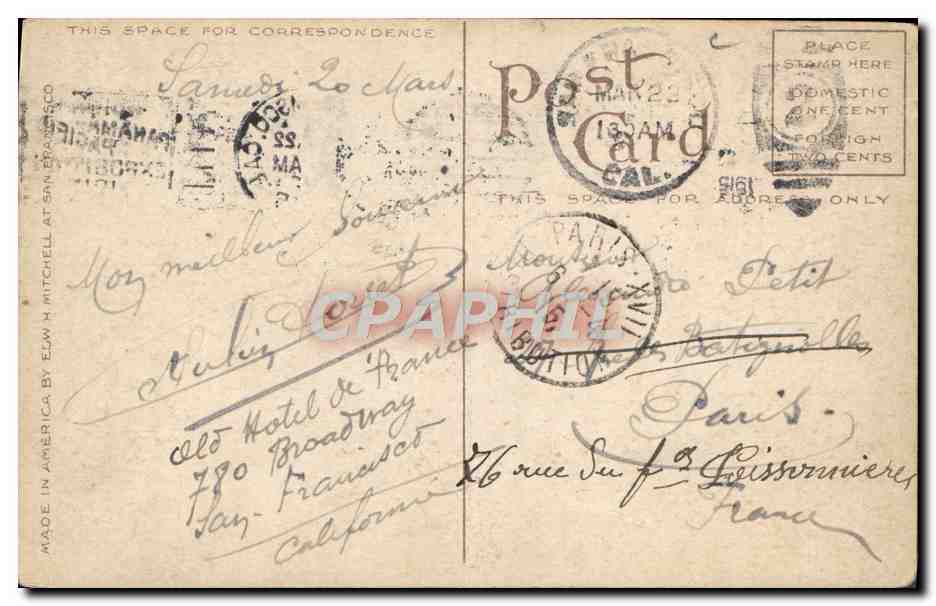 THIS SPACE FOR CORRESPONDENCE
Samedi 20 Mars
Mon meilleur Souvenir
Aubin
Old Hotel de France
780 Broadway
San-Francisco
Californie
MADE IN AMERICA BY EDW H MITCHELL AT SAN FRANCISCO
Post Card
PLACE
STAMP HERE
DOMESTIC
ONE CENT
FOREIGN
TWO CENTS
MAR 22
1 30 AM
CAL.
1915
THIS SPACE FOR ADDRESS ONLY
Monsieur
Alexandre Petit
Batignolles
Paris.
26 rue du fg Poissonniere
France
PARIS XVII
DISTRIBUTION
CPAPHIL